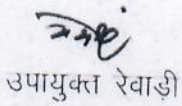 उपायुक्त रेवाड़ी